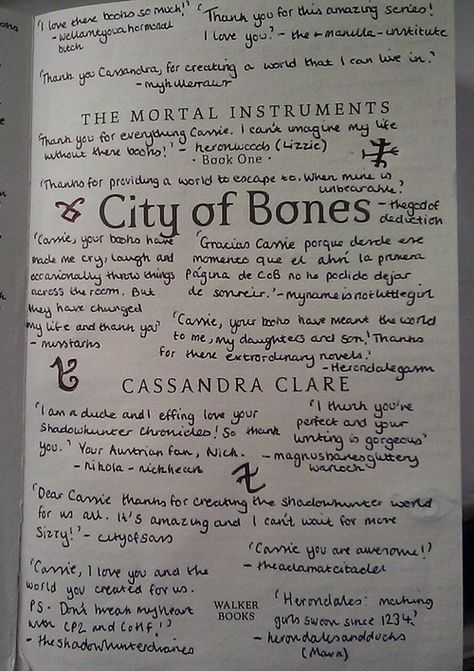 'I love these books so much!'
- wellameyouahormonal
bitch
'Thank you for this amazing series!
I love you!' - the-manilla-institute
'Thank you Cassandra, for creating a world that I can live in.'
THE MORTAL INSTRUMENTS
'Thank you for everything Cassie. I can't imagine my life
without these books!' - heronwoods (Lizzie)
· Book One ·
'Thanks for providing a world to escape to. When mine is
unbearable'
- thegodof
deduction
City of Bones
'Cassie, your books have
made me cry, laugh and
occasionally throw things
across the room. But
they have changed
my life and thank you'
- misstarks
'Gracias Cassie porque desde ese
momento que el ahrí la primera
Página de CoB no he podido dejar
de sonreir.' - mynameisnotlittlegirl
'Cassie, your books have meant the world
to me, my daughters and son! Thanks
for these extrordinary novels.'
- Herondalegasm
CASSANDRA CLARE
'I am a dude and I effing love your
Shadowhunter Chronicles! So thank
you.' Your Austrian fan, Nick.
- nikola - nickheart
'I think you're
perfect and your
writing is gorgeous'
- magnusbanesglittery
warlock
'Dear Cassie thanks for creating the shadowhunter world
for us all. It's amazing and I can't wait for more
Sizzy!' - cityofsass
'Cassie you are awesome!'
- theaclamatcitadel
'Cassie, I love you and the
world you created for us.
PS. Don't break my heart
with CP2 and CoHF!'
- theshadowhunterdiaries
WALKER
BOOKS
'Herondales: making
girls swoon since 1234.'
- herondalesandducks
(Mara)